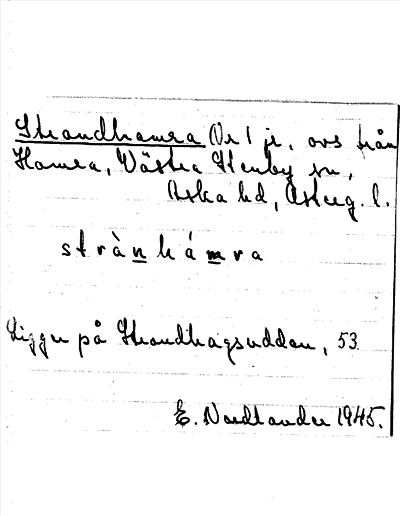 Strandhamra Nr 1 je, avs från
Hamra, Västra Stenby sn,
Aska hd, Österg. l.
stràn hámra
Ligger på Strandhagsudden, 53
E. Nordlander 1945.